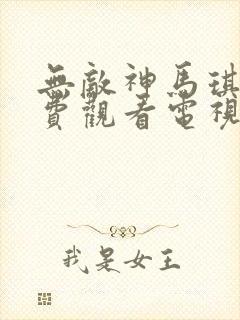 無敵神馬琪
費觀看電視
我是女王